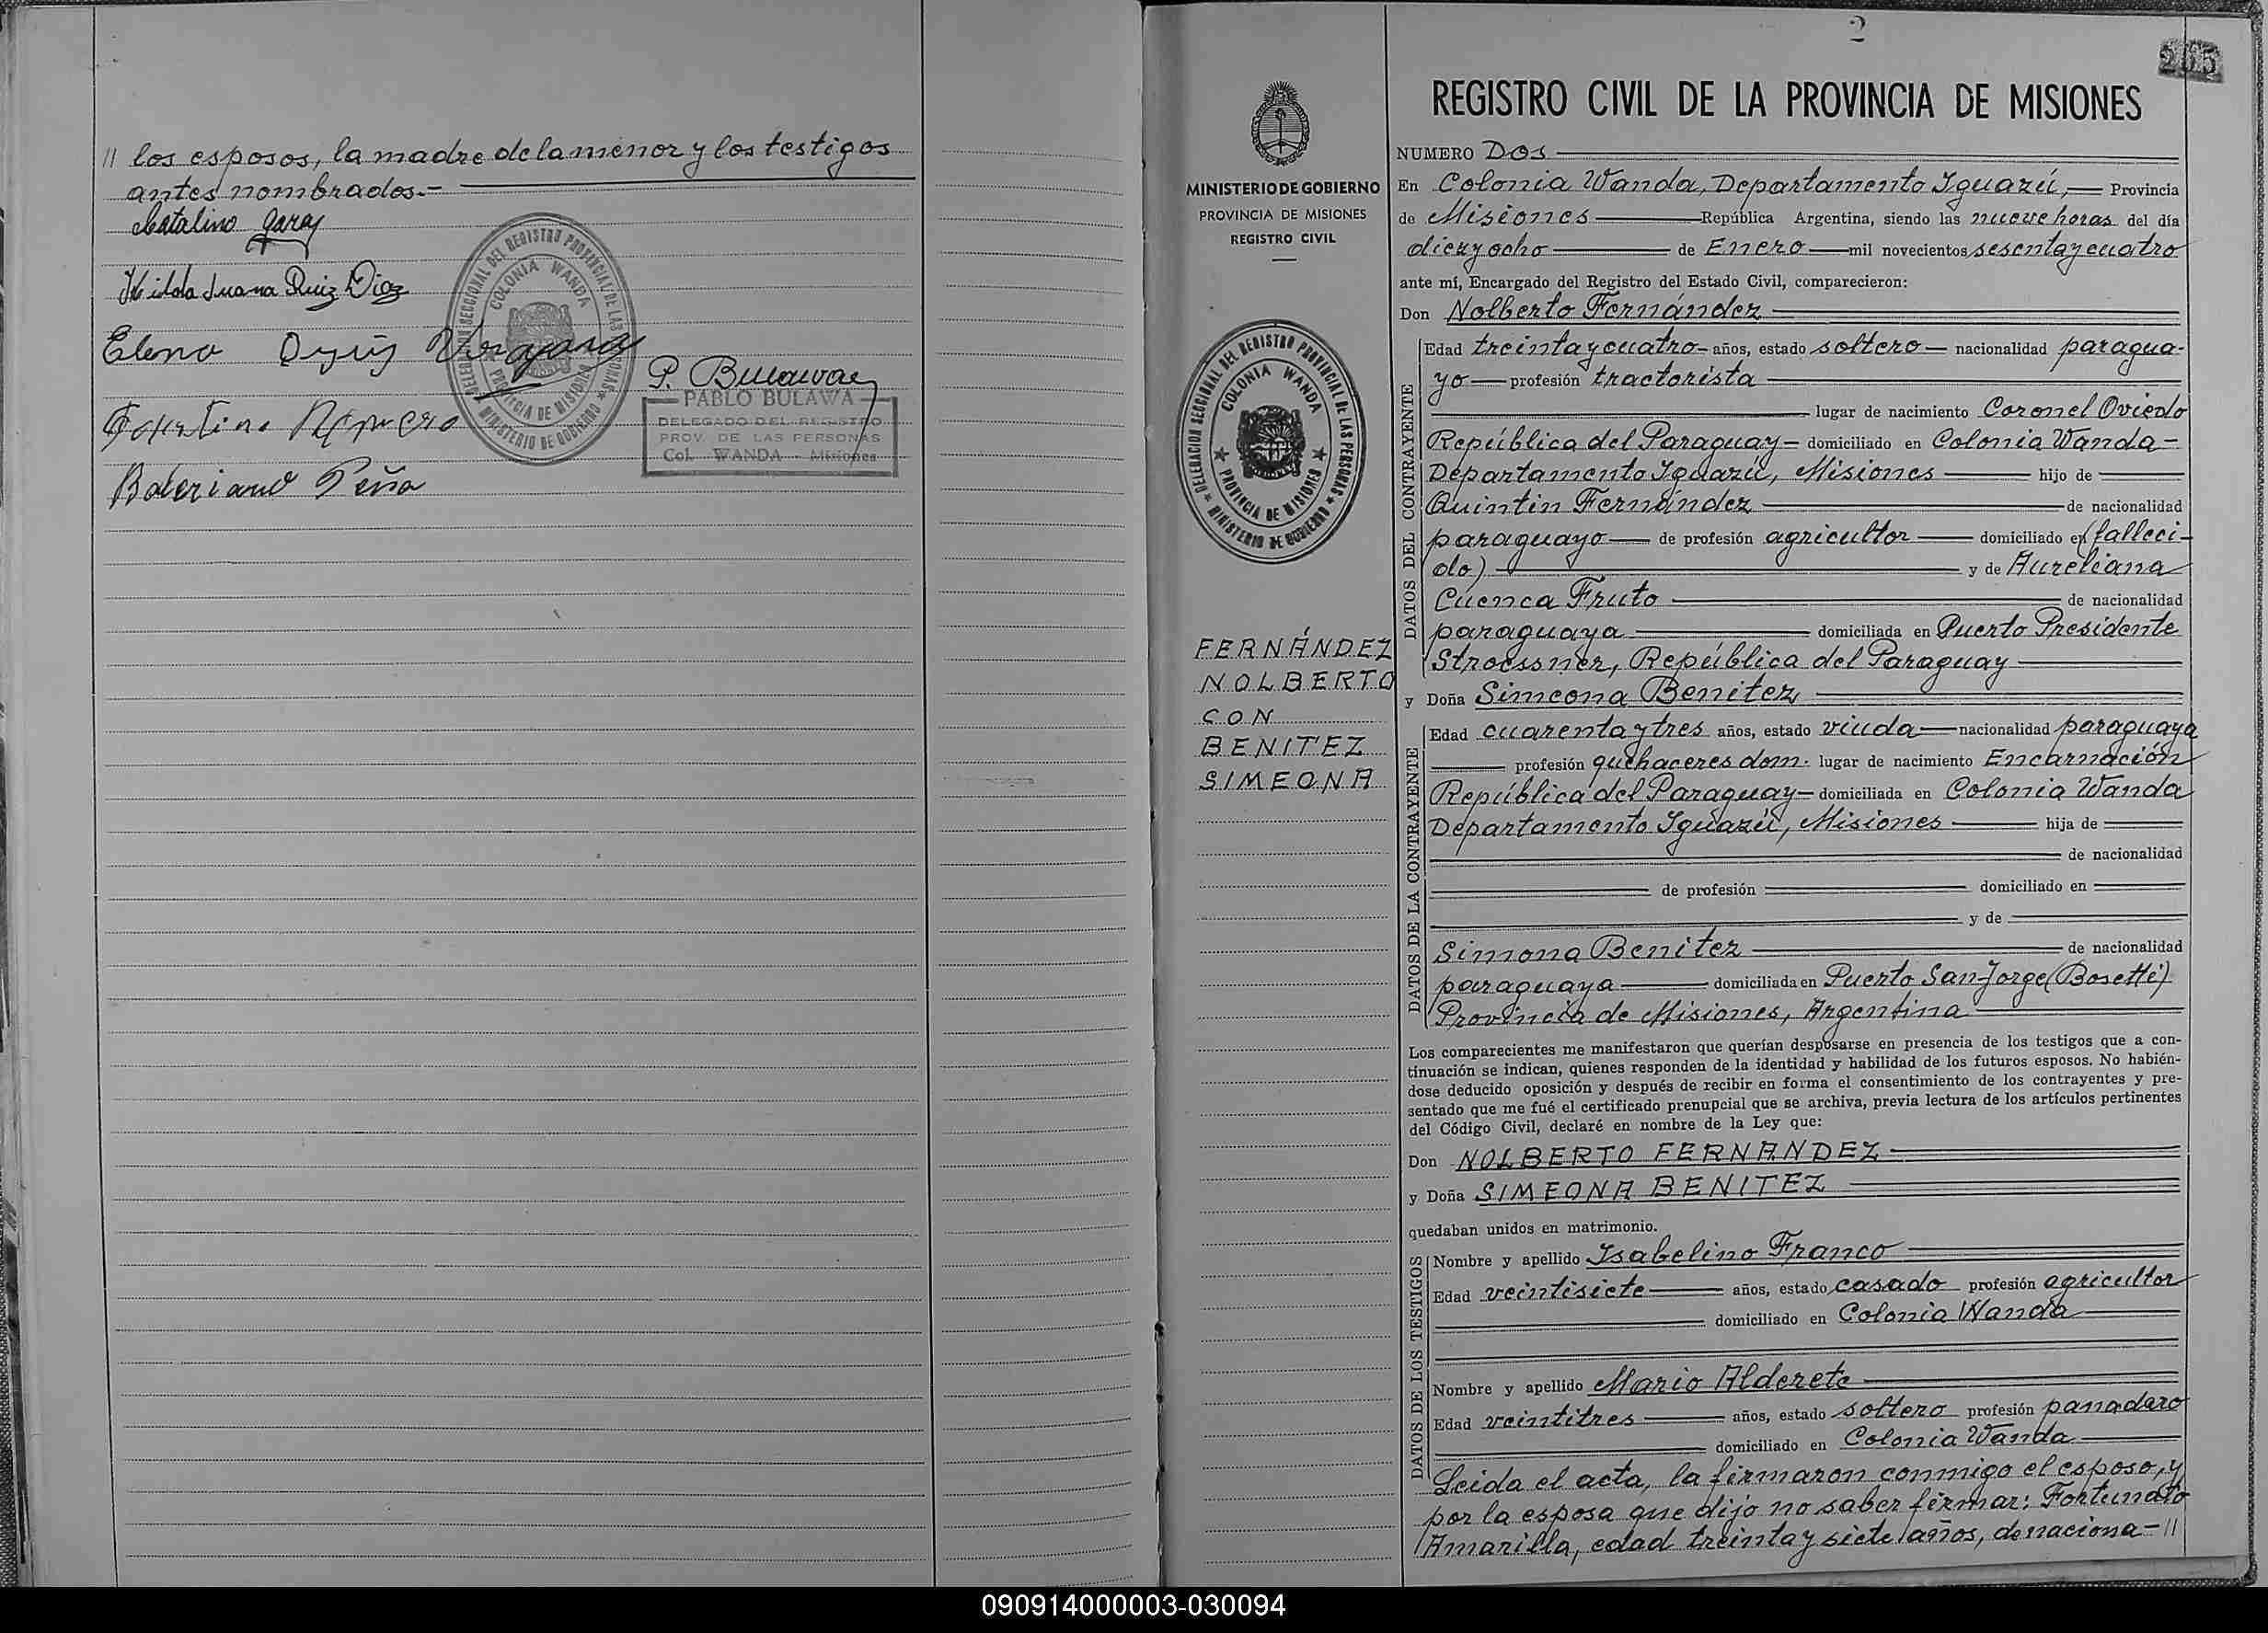 // los esposos, la madre de la menor y los testigos
antes nombrados.-
Catalino Garay
Hilda Juana Ruiz Diaz
Elena
Vergara
DELEGACION SECCIONAL DEL REGISTRO PROVINCIAL DE LAS PERSONAS
COLONIA WANDA
PROVINCIA DE MISIONES
MINISTERIO DE GOBIERNO
P. Bulawa
PABLO BULAWA
DELEGADO DEL REGISTRO
PROV. DE LAS PERSONAS
Col. WANDA - Misiones
Romero
Baleriano Peña
2
265
MINISTERIO DE GOBIERNO
PROVINCIA DE MISIONES
REGISTRO CIVIL
DELEGACION SECCIONAL DEL REGISTRO PROVINCIAL DE LAS PERSONAS
COLONIA WANDA
PROVINCIA DE MISIONES
MINISTERIO DE GOBIERNO
FERNÁNDEZ
NOLBERTO
CON
BENITEZ
SIMEONA
REGISTRO CIVIL DE LA PROVINCIA DE MISIONES
NUMERO Dos
En Colonia Wanda, Departamento Iguazú, Provincia
de Misiones República Argentina, siendo las nueve horas del día
diez y ocho de Enero mil novecientos sesenta y cuatro
ante mí, Encargado del Registro del Estado Civil, comparecieron:
Don Nolberto Fernández
DATOS DEL CONTRAYENTE
Edad treinta y cuatro años, estado soltero nacionalidad paragua-
yo profesión tractorista
lugar de nacimiento Coronel Oviedo
República del Paraguay domiciliado en Colonia Wanda
Departamento Iguazú, Misiones hijo de
Quintin Fernández de nacionalidad
paraguayo de profesión agricultor domiciliado en (falleci-
do) y de Aureliana
Cuenca Fruto de nacionalidad
paraguaya domiciliada en Puerto Presidente
Stroessner, República del Paraguay
y Doña Simeona Benitez
DATOS DE LA CONTRAYENTE
Edad cuarenta y tres años, estado viuda nacionalidad paraguaya
profesión quehaceres dom. lugar de nacimiento Encarnación
República del Paraguay domiciliada en Colonia Wanda
Departamento Iguazú, Misiones hija de
de nacionalidad
de profesión domiciliado en
y de
Simona Benitez de nacionalidad
paraguaya domiciliada en Puerto San Jorge (Bosetti)
Provincia de Misiones, Argentina
Los comparecientes me manifestaron que querían desposarse en presencia de los testigos que a con-
tinuación se indican, quienes responden de la identidad y habilidad de los futuros esposos. No habién-
dose deducido oposición y después de recibir en forma el consentimiento de los contrayentes y pre-
sentado que me fué el certificado prenupcial que se archiva, previa lectura de los artículos pertinentes
del Código Civil, declaré en nombre de la Ley que:
Don NOLBERTO FERNANDEZ
y Doña SIMEONA BENITEZ
quedaban unidos en matrimonio.
DATOS DE LOS TESTIGOS
Nombre y apellido Isabelino Franco
Edad veintisiete años, estado casado profesión agricultor
domiciliado en Colonia Wanda
Nombre y apellido Mario Alderete
Edad veintitres años, estado soltero profesión panadero
domiciliado en Colonia Wanda
Leida el acta, la firmaron conmigo el esposo, y
por la esposa que dijo no saber firmar: Fortunato
Amarilla, edad treinta y siete años, de naciona- //
090914000003-030094